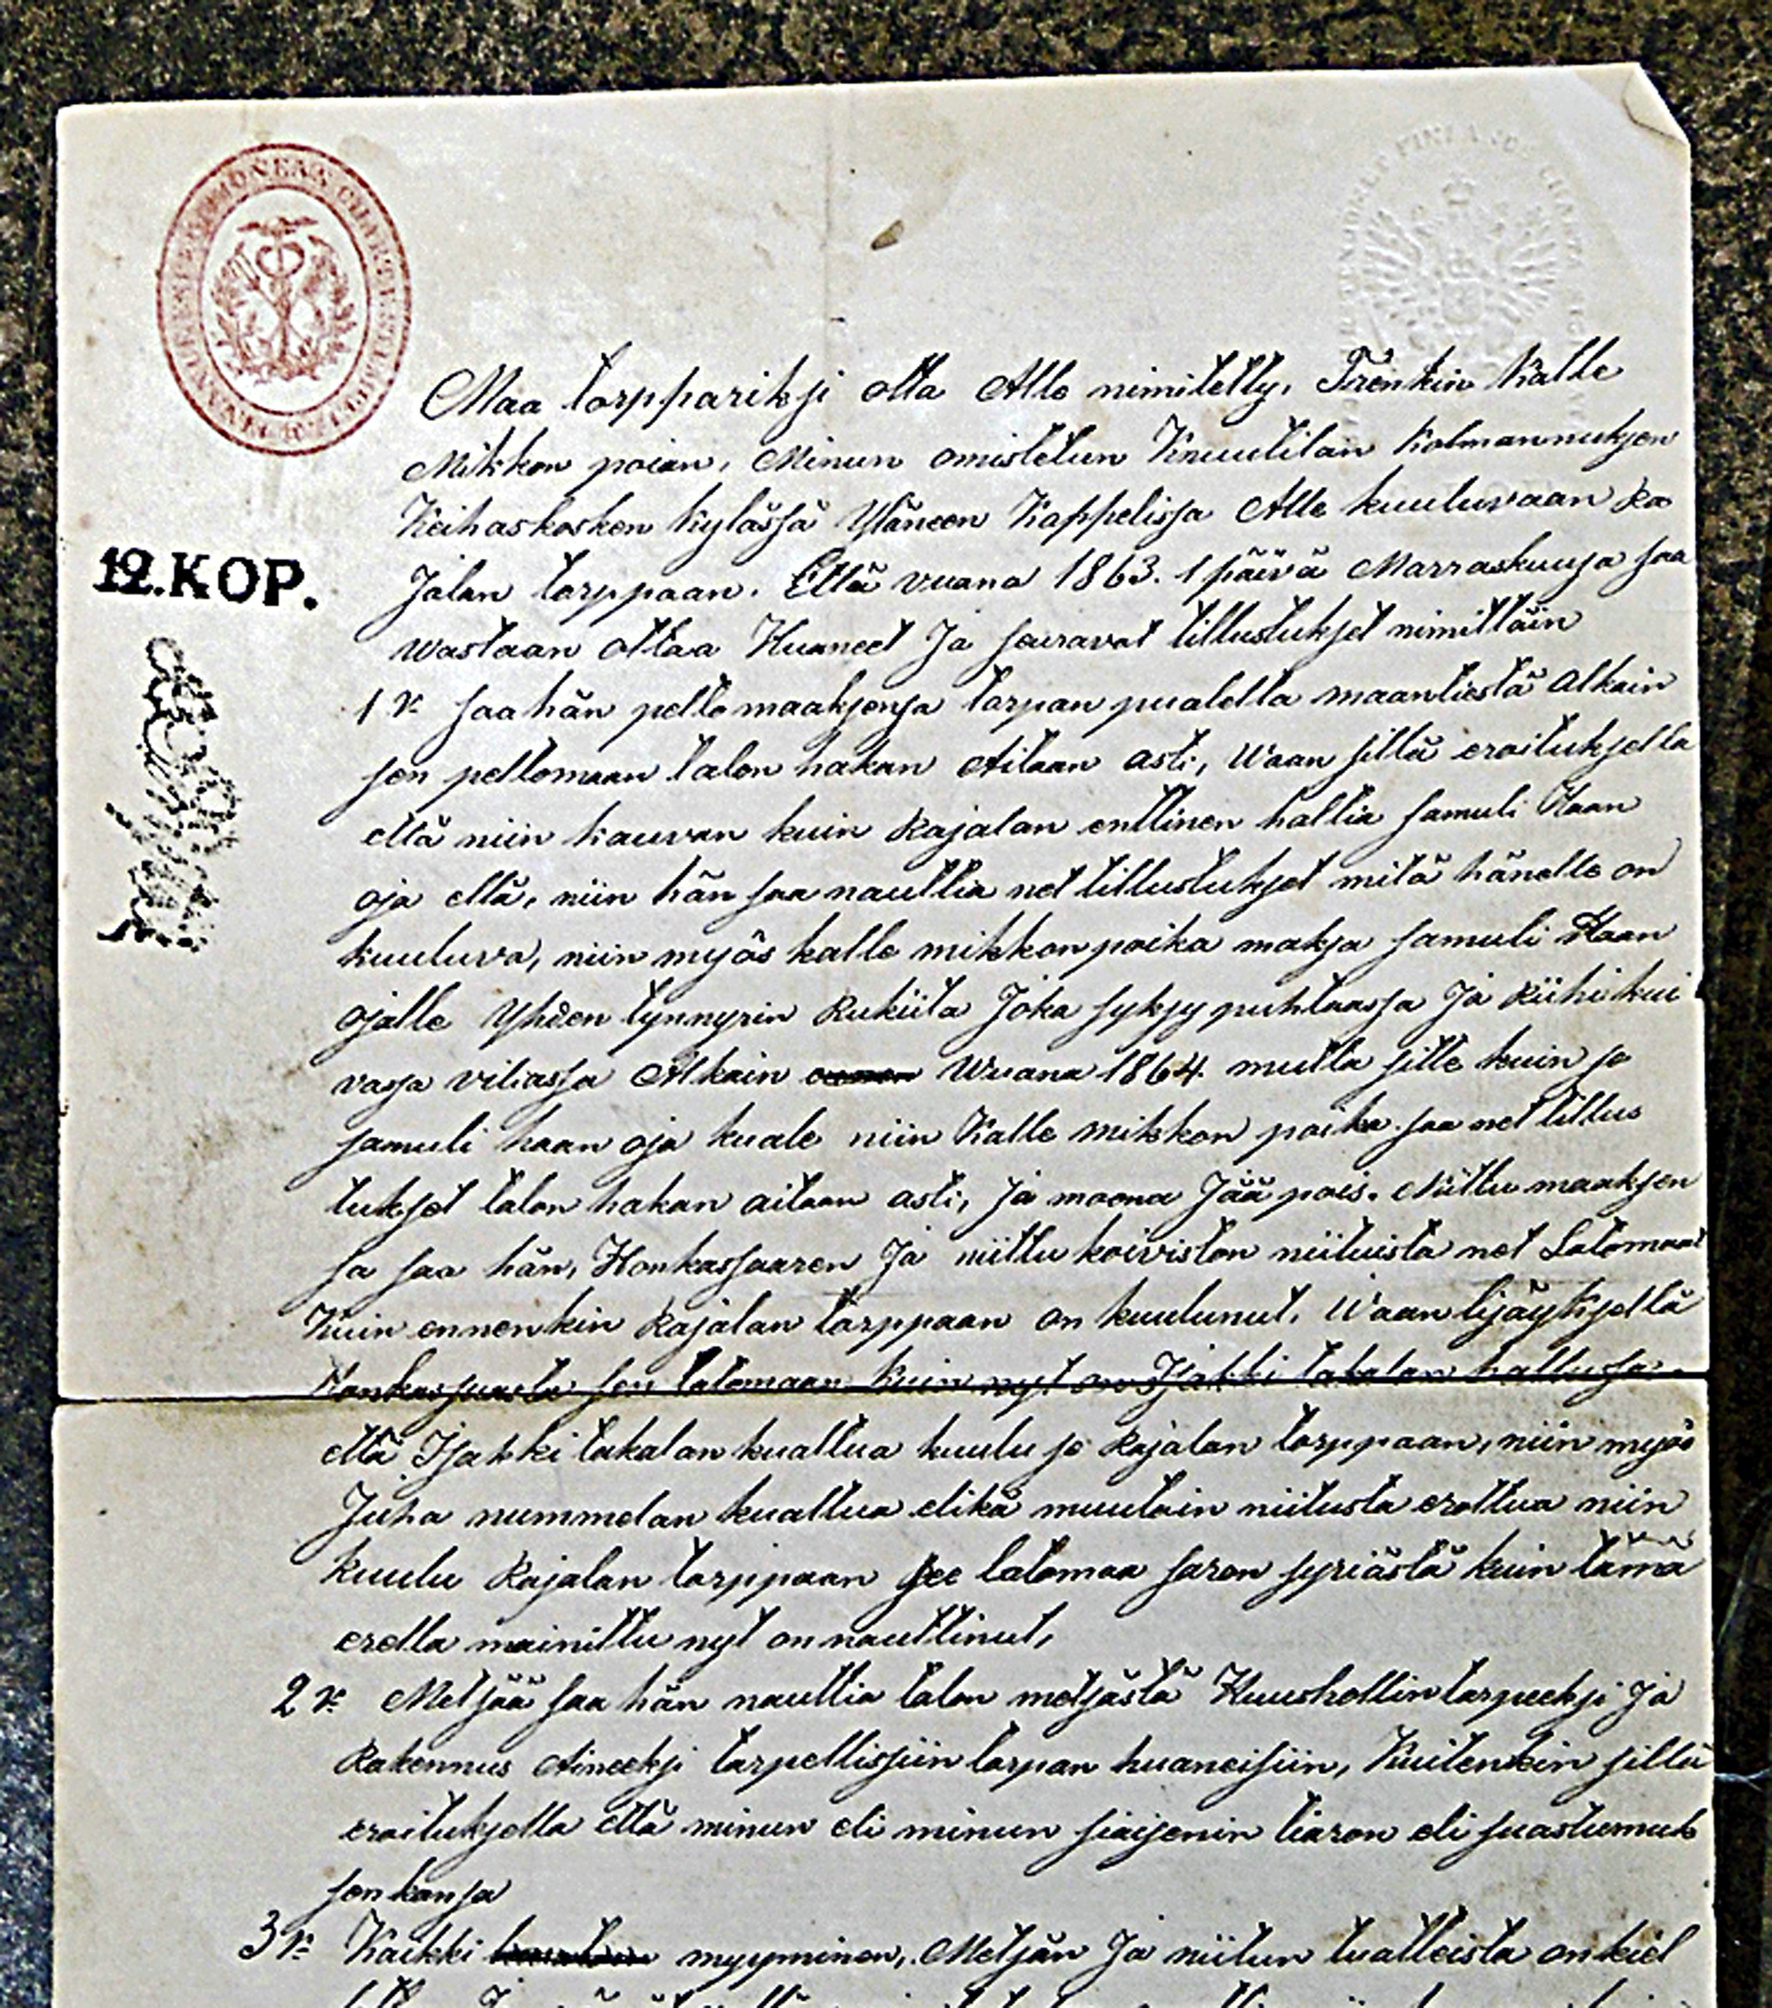 12. KOP.
Maa torpparikji otta Alle nimitetty, Trenkin Kalle
Mikkon poian, Minun omistetun Knuutilan Kolmannukjen
Keihaskosken Kylässä Yläneen Kappelissa Alle kuuluvaan Ra
Jalan torppaan. Että vuana 1863. 1 päivä Marraskuusa saa
wastaan ottaa Huaneet Ja seuravat tillustukset nimittäin
1 saa hän peltomaaksensa torpan pualelta maantiestä alkain
sen peltomaan talon hakan Aitaan asti, Waan sillä eroituksella
että niin kauvan kuin Rajalan enttinen haltia Samuli Haan
oja elää, niin hän saa nauttia net tillustukset mitä hänelle on
kuuluva, niin myös kalle mikkonpoika maksa samuli Haan
ojalle Yhden tynnyrin Rukiita Joka syksy puhtaassa Ja Riihikui
vasa viliassa Alkain Wuana 1864. mutta sitte kuin se
samuli haan oja kuale niin Kalle mikkon poika saa net tillus
tukset talon hakan aitaan asti, Ja moona Jää pois. Niittu maaksen
sa saa hän, Honkassaaren Ja niittu koiviston niituista net Latomaat
Kuin ennenkin Rajalan torppaan on kuulunut. Waan lisäyksellä
Honkassaarsta sen latomaan kuin nyt on Isakki takalan hallussa
että Isakki takalan kualtua kuulu se Rajalan torppaan, niin myös
Juha nummelan kualtua elikä muutoin niitusta erottua niin
kuulu Rajalan torppaan see latomaa saron syriästä kuin tämä
erella mainittu nyt on nauttinut,
2 Metsää saa hän nauttia talon metsästä Huushollin tarpeeksi Ja
Rakennus Aineeksi tarpellissiin torpan huaneisiin, Kuitenkin sillä
eroituksella että minun eli minun siaisenin tiaron eli suastumuk
sen kansa
3 Kaikki myyminen, Metsän Ja niitun tuatteista on kiel